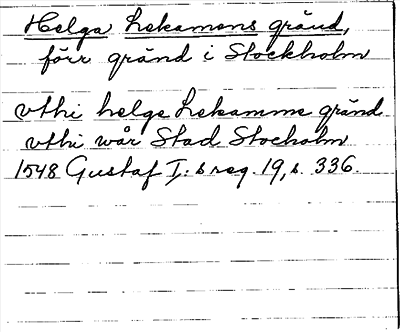 Helga Lekamens gränd,
förr gränd i Stockholm
vthi helge Lekamme gränd
vthi wår Stad Stocholm
1548 Gustaf I:s reg. 19, s. 336.